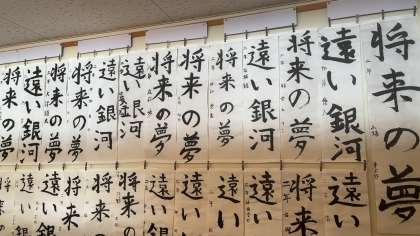 将来の夢
遠い銀河
将来の夢
遠い銀河
将来の夢
将来の夢
将来の夢
遠い銀河
遠い銀河
将来の夢
将来の夢
遠い銀河
将来の夢
遠い
将来
遠い
遠い
遠い
遠い
遠い
将来
将来
遠い
遠い
将来